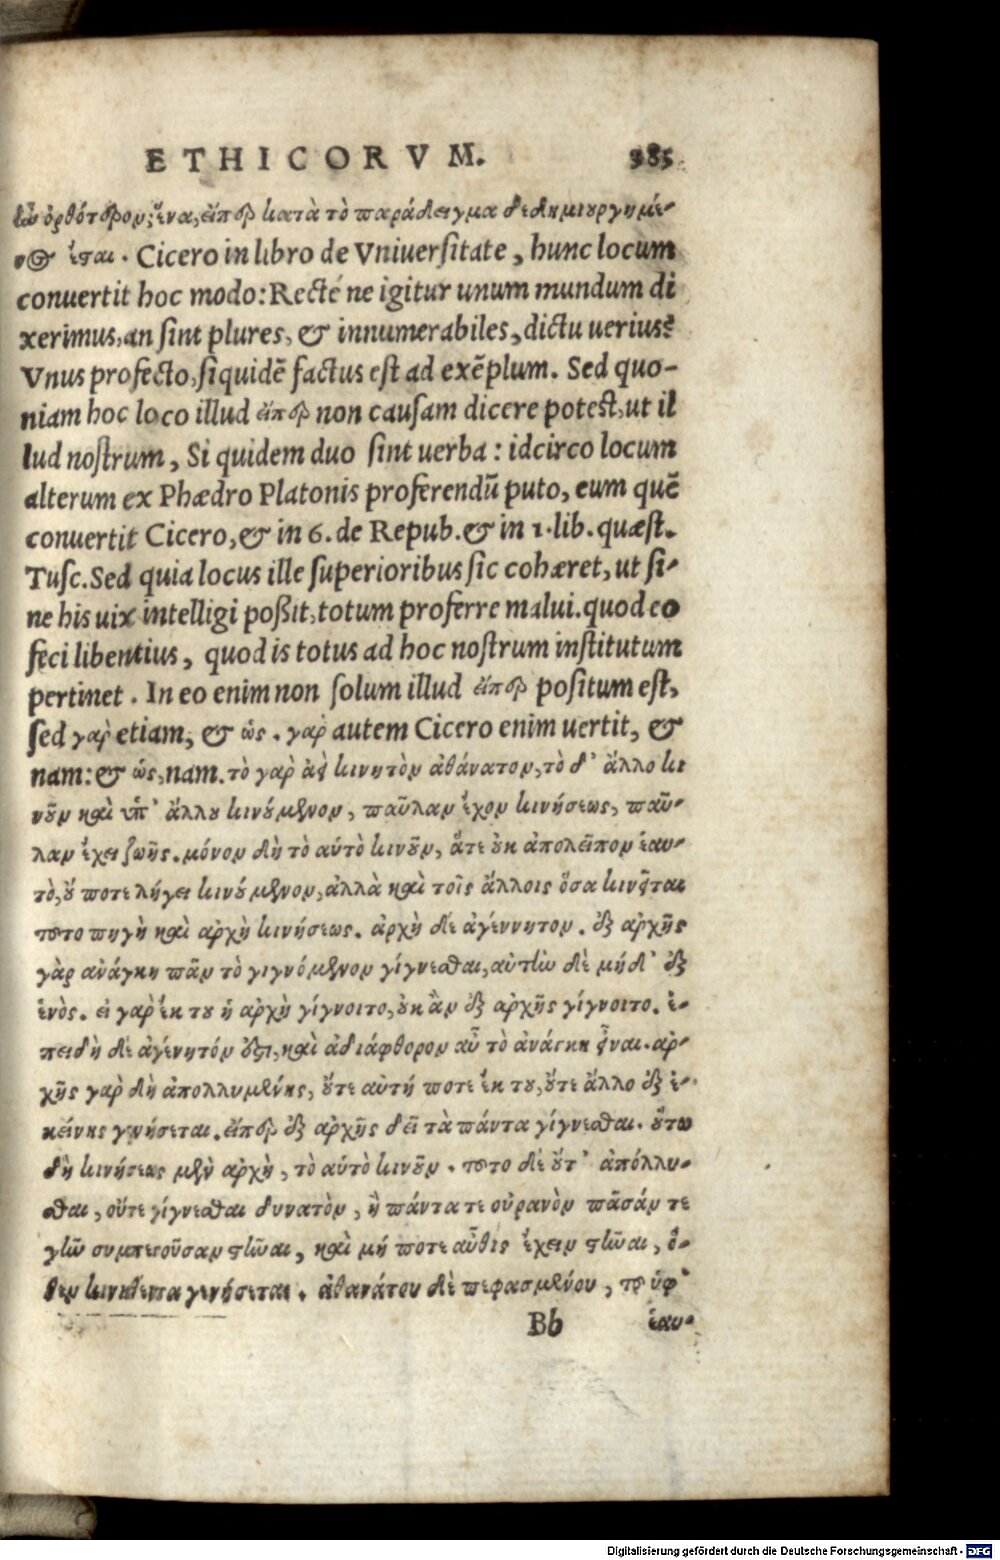 ETHICORVM. 385
ἦν ὀρθότερον; ἕνα, εἴπερ κατὰ τὸ παράδειγμα δεδημιουργημέ-
νος ἔσται. Cicero in libro de Vniuersitate, hunc locum
conuertit hoc modo: Recté ne igitur unum mundum di
xerimus, an sint plures, & innumerabiles, dictu uerius?
Vnus profecto, siquidẽ factus est ad exẽplum. Sed quo-
niam hoc loco illud εἴπερ non causam dicere potest, ut il
lud nostrum, Si quidem duo sint uerba: idcirco locum
alterum ex Phædro Platonis proferendũ puto, eum quẽ
conuertit Cicero, & in 6. de Repub. & in 1. lib. quæst.
Tusc. Sed quia locus ille superioribus sic cohæret, ut si-
ne his uix intelligi poßit, totum proferre malui. quod eo
feci libentius, quod is totus ad hoc nostrum institutum
pertinet. In eo enim non solum illud εἴπερ positum est,
sed γαρ̀ etiam, & ὡς. γαρ̀ autem Cicero enim uertit, &
nam: & ὡς, nam. τὸ γαρ̀ ἀεὶ κινητὸν ἀθάνατον, τὸ δ' ἄλλο κι
νοῦν καὶ ὑπ' ἄλλου κινούμενον, παῦλαν ἔχον κινήσεως, παῦ-
λαν ἔχει ζωῆς. μόνον δὴ τὸ αὑτὸ κινοῦν, ἅτε οὐκ ἀπολεῖπον ἑαυ-
τὸ, οὔ ποτε λήγει κινούμενον, ἀλλὰ καὶ τοῖς ἄλλοις ὅσα κινεῖται
τοῦτο πηγὴ καὶ ἀρχὴ κινήσεως. ἀρχὴ δὲ ἀγέννητον. ἐξ ἀρχῆς
γὰρ ἀνάγκη πᾶν τὸ γιγνόμενον γίγνεσθαι, αὐτὴν δὲ μήδ' ἐξ
ἑνὸς. εἰ γαρ̀ ἔκ του ἡ ἀρχὴ γίγνοιτο, οὐκ ἂν ἐξ ἀρχῆς γίγνοιτο. ἐ-
πειδὴ δὲ ἀγένητόν ἐστι, καὶ ἀδιάφθορον αὖ τὸ ἀνάγκη εἶναι. ἀρ-
χῆς γαρ̀ δὴ ἀπολλυμένης, οὔτε αὐτή ποτε ἔκ του, οὔτε ἄλλο ἐξ ἐ-
κείνης γενήσεται. εἴπερ ἐξ ἀρχῆς δεῖ τὰ πάντα γίγνεσθαι. οὕτω
δὴ κινήσεως μὲν ἀρχὴ, τὸ αὑτὸ κινοῦν. τοῦτο δὲ οὔτ' ἀπόλλυ-
σθαι, οὔτε γίγνεσθαι δυνατὸν, ἢ πάντα τε οὐρανὸν πᾶσάν τε
γῆν συμπεσοῦσαν στῆναι, καὶ μή ποτε αὖθις ἔχειν στῆναι, ὅ-
θεν κινηθέντα γενήσεται. ἀθανάτου δὲ πεφασμένου, τοῦ ὑφ'
Bb ἑαυ-
Digitalisierung gefördert durch die Deutsche Forschungsgemeinschaft - DFG